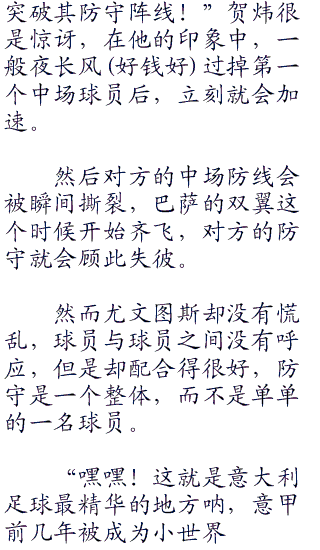 突破其防守阵线！”贺炜很
是惊讶，在他的印象中，一
般夜长风(好钱好)过掉第一
个中场球员后，立刻就会加
速。
然后对方的中场防线会
被瞬间撕裂，巴萨的双翼这
个时候开始齐飞，对方的防
守就会顾此失彼。
然而尤文图斯却没有慌
乱，球员与球员之间没有呼
应，但是却配合得很好，防
守是一个整体，而不是单单
的一名球员。
“嘿嘿！这就是意大利
足球最精华的地方呐，意甲
前几年被成为小世界